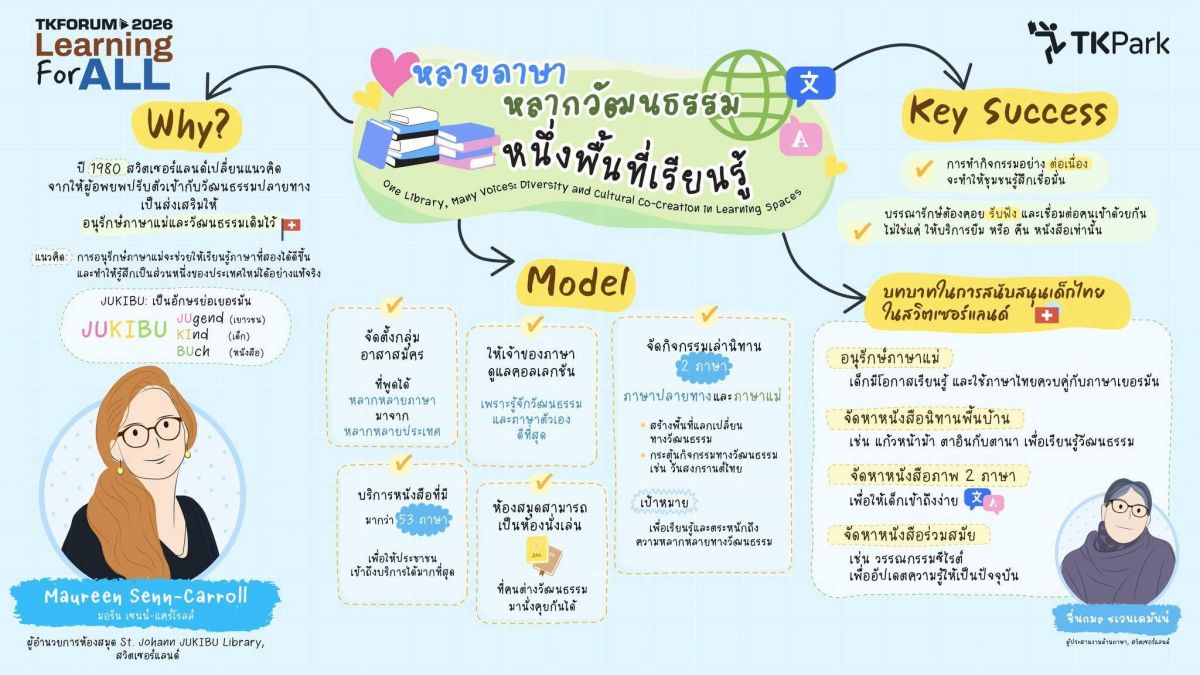 TKFORUM 2026
Learning
For ALL
TKPark
หลายภาษา
หลากวัฒนธรรม
หนึ่งพื้นที่เรียนรู้
One Library, Many Voices: Diversity and Cultural Co-Creation in Learning Spaces
Why?
ปี 1980 สวิตเซอร์แลนด์เปลี่ยนแนวคิด
จากให้ผู้อพยพปรับตัวเข้ากับวัฒนธรรมปลายทาง
เป็นส่งเสริมให้
อนุรักษ์ภาษาแม่และวัฒนธรรมเดิมไว้
แนวคิด: การอนุรักษ์ภาษาแม่จะช่วยให้เรียนรู้ภาษาที่สองได้ดีขึ้น
และทำให้รู้สึกเป็นส่วนหนึ่งของประเทศใหม่ได้อย่างแท้จริง
JUKIBU: เป็นอักษรย่อเยอรมัน
JUKIBU
JUgend (เยาวชน)
KInd (เด็ก)
BUch (หนังสือ)
Maureen Senn-Carroll
มอรีน เซนน์-แคร์โรลล์
ผู้อำนวยการห้องสมุด St. Johann JUKIBU Library,
สวิตเซอร์แลนด์
Model
จัดตั้งกลุ่ม
อาสาสมัคร
ที่พูดได้
หลากหลายภาษา
มาจาก
หลากหลายประเทศ
ให้เจ้าของภาษา
ดูแลคอลเลกชัน
เพราะรู้จักวัฒนธรรม
และภาษาตัวเอง
ดีที่สุด
จัดกิจกรรมเล่านิทาน
2 ภาษา
ภาษาปลายทางและภาษาแม่
สร้างพื้นที่แลกเปลี่ยน
ทางวัฒนธรรม
กระตุ้นกิจกรรมทางวัฒนธรรม
เช่น วันสงกรานต์ไทย
เป้าหมาย
เพื่อเรียนรู้และตระหนักถึง
ความหลากหลายทางวัฒนธรรม
บริการหนังสือที่มี
มากว่า 53 ภาษา
เพื่อให้ประชาชน
เข้าถึงบริการได้มากที่สุด
ห้องสมุดสามารถ
เป็นห้องนั่งเล่น
ที่คนต่างวัฒนธรรม
มานั่งคุยกันได้
Key Success
การทำกิจกรรมอย่าง ต่อเนื่อง
จะทำให้ชุมชนรู้สึกเชื่อมั่น
บรรณารักษ์ต้องคอย รับฟัง และเชื่อมต่อคนเข้าด้วยกัน
ไม่ใช่แค่ ให้บริการยืม หรือ คืน หนังสือเท่านั้น
บทบาทในการสนับสนุนเด็กไทย
ในสวิตเซอร์แลนด์
อนุรักษ์ภาษาแม่
เด็กมีโอกาสเรียนรู้ และใช้ภาษาไทยควบคู่กับภาษาเยอรมัน
จัดหาหนังสือนิทานพื้นบ้าน
เช่น แก้วหน้าม้า ตาอินกับตานา เพื่อเรียนรู้วัฒนธรรม
จัดหาหนังสือภาพ 2 ภาษา
เพื่อให้เด็กเข้าถึงง่าย
文
A
จัดหาหนังสือร่วมสมัย
เช่น วรรณกรรมซีไรต์
เพื่ออัปเดตความรู้ให้เป็นปัจจุบัน
ชื่นกมล ชเวนเดมันน์
ผู้ประสานงานด้านภาษา, สวิตเซอร์แลนด์
文
A